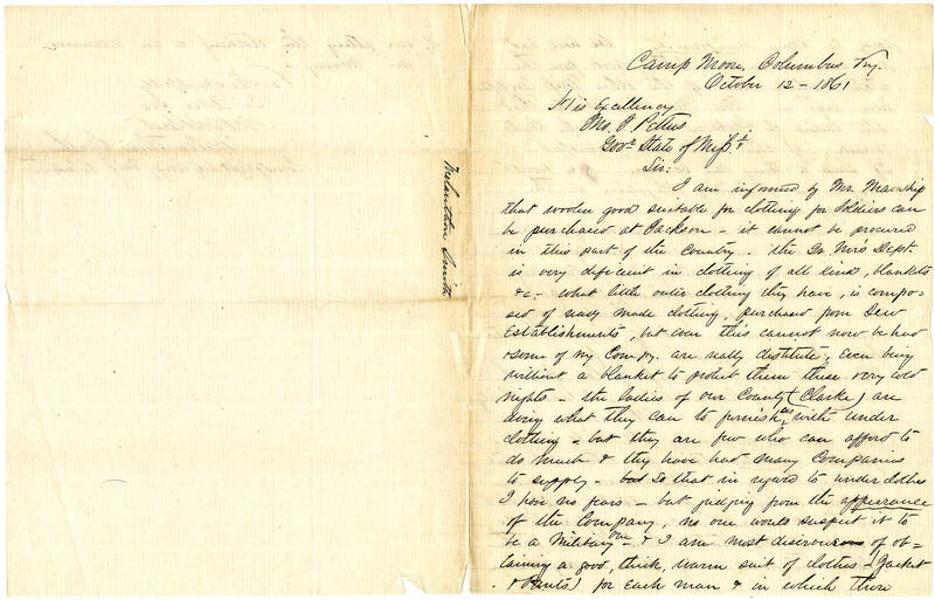 Melanthon Smith
Camp Moore, Columbus Ky.
October 12 - 1861
His Excellency
Jno. J. Pettus
Govr. State of Missi.
Sir:
I am informed by Mr.
that woolen good suitable for clothing for soldiers can
be purchased at Jackson - it cannot be procured
in this part of the Country. the Dept.
is very deficient in clothing of all kind, blankets
&c - what little outer clothing they have, is compo-
sed of ready made clothing, purchased from
Establishments, but even this cannot now be had
& some of my Compy. are really destitute, even being
without a blanket to protect them these very cold
nights - the ladies of our County (Clarke) are
doing what they can to furnish us with under
clothing - but they are few who can afford to
do much & they have had many Companies
to supply - So that in regard to under clothes
I have no fears - but judging from the appearance
of the Company, no one would suspect it to
be a Military one - & I am most desirous of ob=
taining a good, thick, warm suit of clothes - (Jacket
& Pants) for each man & in which there